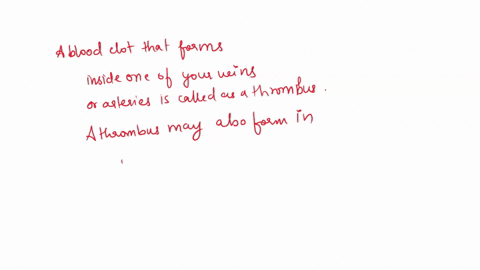 A blood clot that forms
inside one of your veins
or arteries is called as a thrombus.
A thrombus may also form in